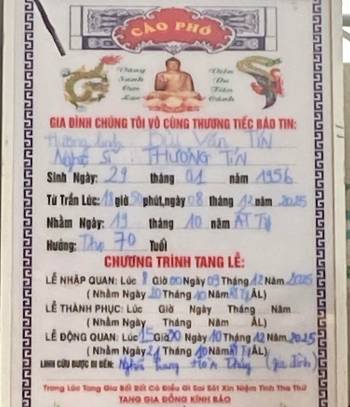 CÁO PHÓ
Vãng Sanh Cực Lạc
Viên Du Tiên Cảnh
GIA ĐÌNH CHÚNG TÔI VÔ CÙNG THƯƠNG TIẾC BÁO TIN:
Hương linh BÙI VĂN TÍN
Nghệ Sĩ: THƯƠNG TÍN
Sinh Ngày: 29 tháng 01 năm 1956
Từ Trần Lúc: giờ phút, ngày 08 tháng 12 năm 2025
Nhằm Ngày: 19 tháng 10 năm ẤT TỴ
Hưởng: Thọ 70 Tuổi
CHƯƠNG TRÌNH TANG LỄ:
LỄ NHẬP QUAN: Lúc 8 Giờ 00 Ngày 09 Tháng 12 Năm 2025
( Nhằm Ngày 20 Tháng 10 Năm ẤT TỴ ÂL)
LỄ THÀNH PHỤC: Lúc Giờ Ngày Tháng Năm
( Nhằm Ngày Tháng Năm ÂL)
LỄ ĐỘNG QUAN: Lúc 15 Giờ 30 Ngày 10 Tháng 12 Năm 2025
( Nhằm Ngày 21 Tháng 10 Năm ẤT TỴ ÂL)
LINH CỬU ĐƯỢC DI ĐẾN: Nghĩa trang (gia đình)
Trong Lúc Tang Gia Bối Rối Có Điều Gì Sai Sót Xin Niệm Tình Tha Thứ
TANG GIA ĐỒNG KÍNH BÁO